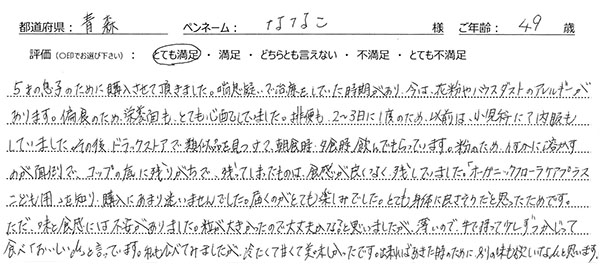 都道府県： 青森 ペンネーム： なつなこ 様 ご年齢： 49 歳
評価（○印でお選び下さい）： とても満足 ・ 満足 ・ どちらとも言えない ・ 不満足 ・ とても不満足
5才の息子のために購入させて頂きました。喘息疑いで治療をしていた時期があり、今は、花粉やハウスダストのアレルギーが
あります。偏食のため、栄養面も、とても心配していました。排便も、2〜3日に1度のため、以前は、小児科にて内服も
していました。その後、ドラックストアで、類似品を見つけて、朝食時、夕食時、飲んでもらっています。粉のため、何かに溶かす
のが面倒で、コップの底に残りがちで、残ってしまったものは、食感が良くなく、残していました。「オーガニックフローラケアプラス
こども用」を知り、購入にあまり迷いませんでした。届くのがとても楽しみでした。とても身体に良さそうだと思ったためです。
ただ、味と食感には不安がありました。粒が大きかったので、大丈夫かなぁと思いましたが、薄いので、手で持って少しずつかじって
食べ「おいしい」と言っています。私も食べてみましたが、冷たくて甘くて美味しかったです。出来ればあきた時のために、別の味も欲しいなぁと思います。